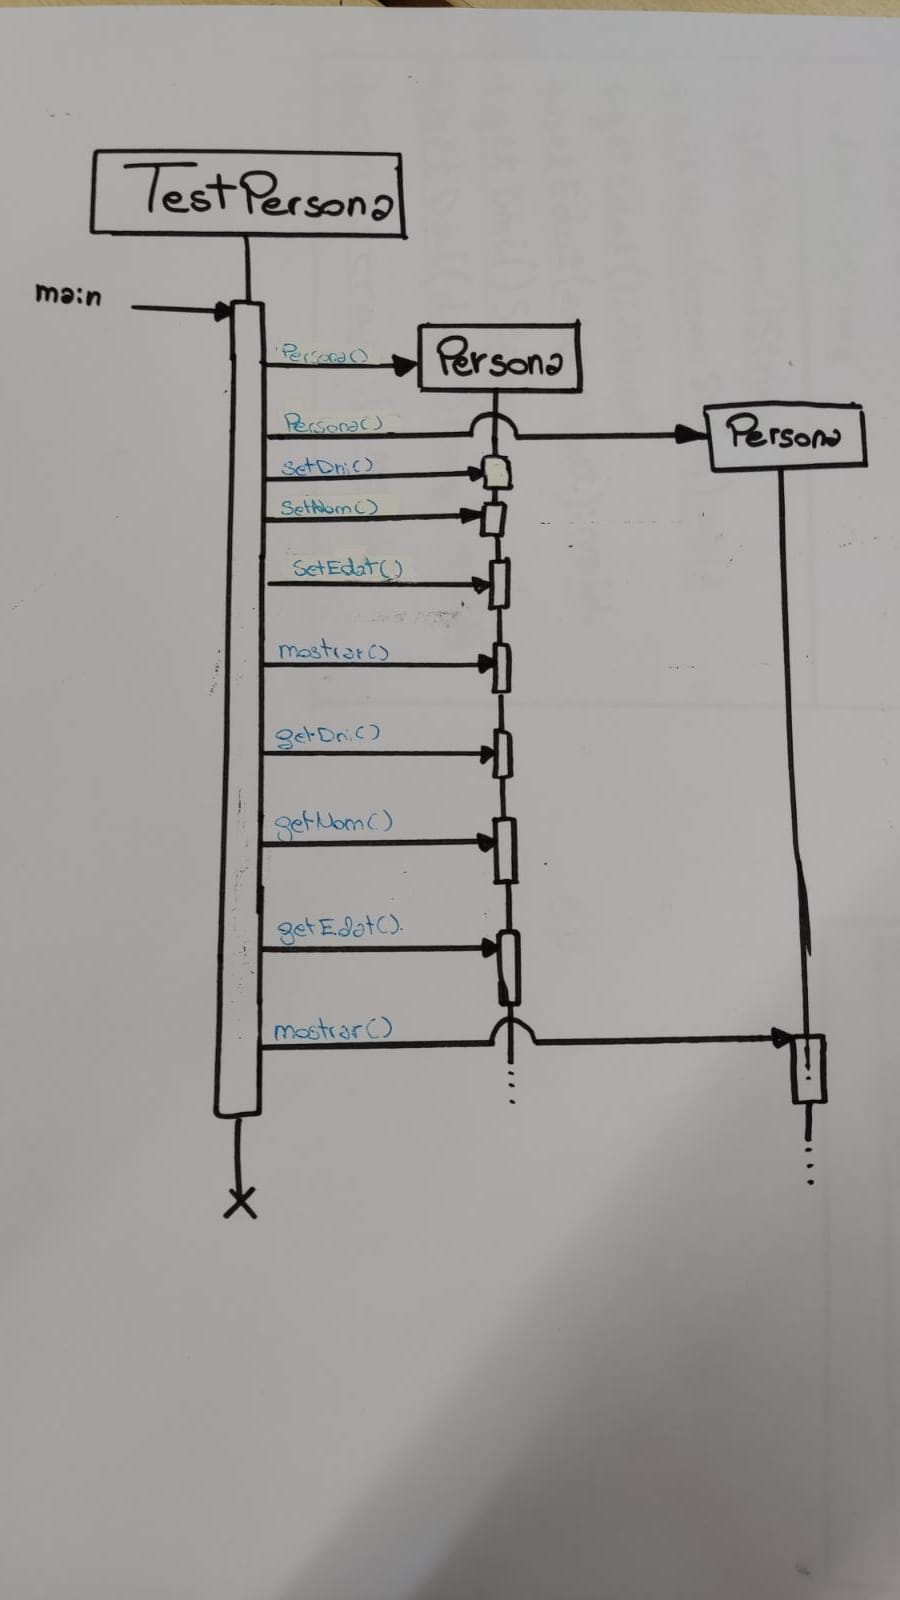 TestPersona
main
Persona()
Persona
Persona()
Persona
setDni()
SetNom()
SetEdat()
mostrar()
getDni()
getNom()
getEdat().
mostrar()